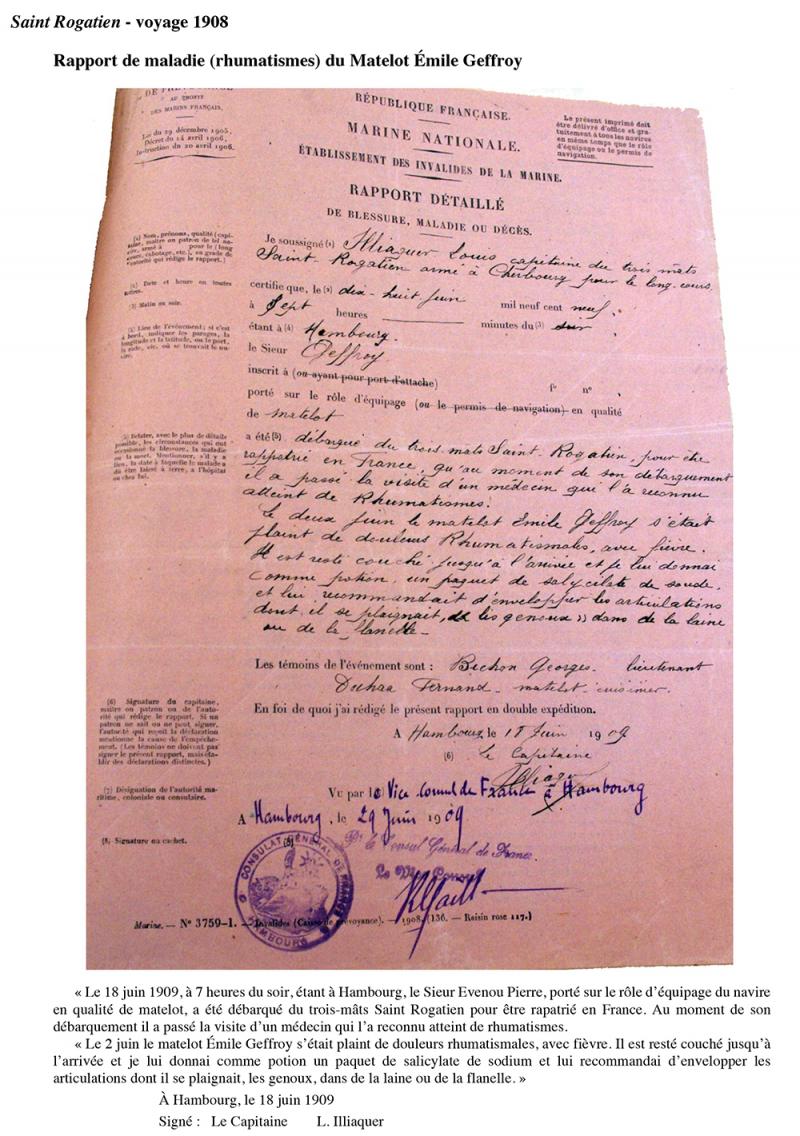 Saint Rogatien - voyage 1908
Rapport de maladie (rhumatismes) du Matelot Émile Geffroy
AU PROFIT
DES MARINS FRANÇAIS.
Loi du 29 décembre 1905,
Décret du 14 avril 1906,
Instruction du 20 avril 1906.
RÉPUBLIQUE FRANÇAISE.
MARINE NATIONALE.
ÉTABLISSEMENT DES INVALIDES DE LA MARINE.
Le présent imprimé doit
être délivré d'office et gra-
tuitement à tous les navires
en même temps que le rôle
d'équipage ou le permis de
navigation.
RAPPORT DÉTAILLÉ
DE BLESSURE, MALADIE OU DÉCÈS.
(1) Nom, prénoms, qualité (capi-
taine, maître ou patron de tel na-
vire, armé à pour le (long
cours, cabotage, etc.), ou grade de
l'autorité qui rédige le rapport.)
(2) Date et heure en toutes
lettres.
(3) Matin ou soir.
(4) Lieu de l'événement; si c'est
à bord, indiquer les parages, la
longitude et la latitude, ou le port,
la rade, etc. où se trouvait le na-
vire.
Je soussigné (1) Illiaquer Louis capitaine du trois mats
Saint-Rogatien armé à Cherbourg pour le long-cours
certifie que, le (2) dix-huit juin mil neuf cent neuf,
à sept heures minutes du (3) soir
étant à (4) Hambourg.
le Sieur Geffroy
inscrit à (ou ayant pour port d'attache) f° n° ,
porté sur le rôle d'équipage (ou le permis de navigation) en qualité
de matelot
(5) Relater, avec le plus de détails
possible, les circonstances qui ont
occasionné la blessure, la maladie
ou la mort. Mentionner, s'il y a
lieu, la date à laquelle le malade a
dû être laissé à terre, à l'hôpital
ou chez lui.
a été (5) débarqué du trois mats Saint-Rogatien, pour être
rappatrié en France, qu'au moment de son débarquement
il a passé la visite d'un médecin qui l'a reconnu
atteint de Rhumatismes.
Le deux juin le matelot Emile Geffroy s'était
plaint de douleurs Rhumatismales, avec fièvre.
Il est resté couché jusqu'à l'arrivée et je lui donnai
comme potion, un paquet de salycilate de soude,
et lui recommandait d'envelopper les articulations
dont il se plaignait, les genoux, dans de la laine
ou de la flanelle.-
Les témoins de l'événement sont : Bechon Georges. lieutenant
Duhaa Fernand - matelot-cuisinier
En foi de quoi j'ai rédigé le présent rapport en double expédition.
(6) Signature du capitaine,
maître ou patron ou de l'auto-
rité qui rédige le rapport. Si un
patron ne sait ou ne peut signer,
l'autorité qui reçoit la déclaration
mentionne la cause de l'empêche-
ment. (Les témoins ne doivent pas
signer le présent rapport, mais éta-
blir des déclarations distinctes.)
A Hambourg le 18 Juin 1909
(6) Le Capitaine
Illiaquer
(7) Désignation de l'autorité ma-
ritime, coloniale ou consulaire.
Vu par le Vice Consul de France à Hambourg
A Hambourg, le 29 Juin 1909
(8) Signature ou cachet.
Pr le Consul Général de France.
Le Vice Consul
CONSULAT GÉNÉRAL DE FRANCE
HAMBOURG
Marine. — N° 3759-1. — Invalides (Caisse de prévoyance). — 1908. (136. — Raisin rose 117.)
« Le 18 juin 1909, à 7 heures du soir, étant à Hambourg, le Sieur Evenou Pierre, porté sur le rôle d'équipage du navire
en qualité de matelot, a été débarqué du trois-mâts Saint Rogatien pour être rapatrié en France. Au moment de son
débarquement il a passé la visite d'un médecin qui l'a reconnu atteint de rhumatismes.
« Le 2 juin le matelot Émile Geffroy s'était plaint de douleurs rhumatismales, avec fièvre. Il est resté couché jusqu'à
l'arrivée et je lui donnai comme potion un paquet de salicylate de sodium et lui recommandai d'envelopper les
articulations dont il se plaignait, les genoux, dans de la laine ou de la flanelle. »
À Hambourg, le 18 juin 1909
Signé : Le Capitaine L. Illiaquer